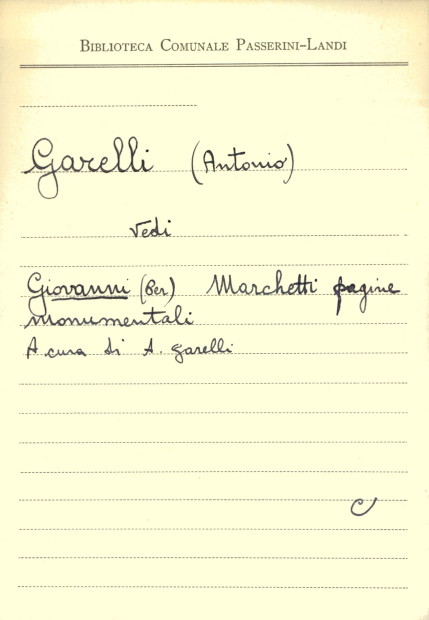 BIBLIOTECA COMUNALE PASSERINI-LANDI
Garelli (Antonio)
Vedi
Giovanni (Per) Marchetti pagine
monumentali
A cura di A. Garelli
C